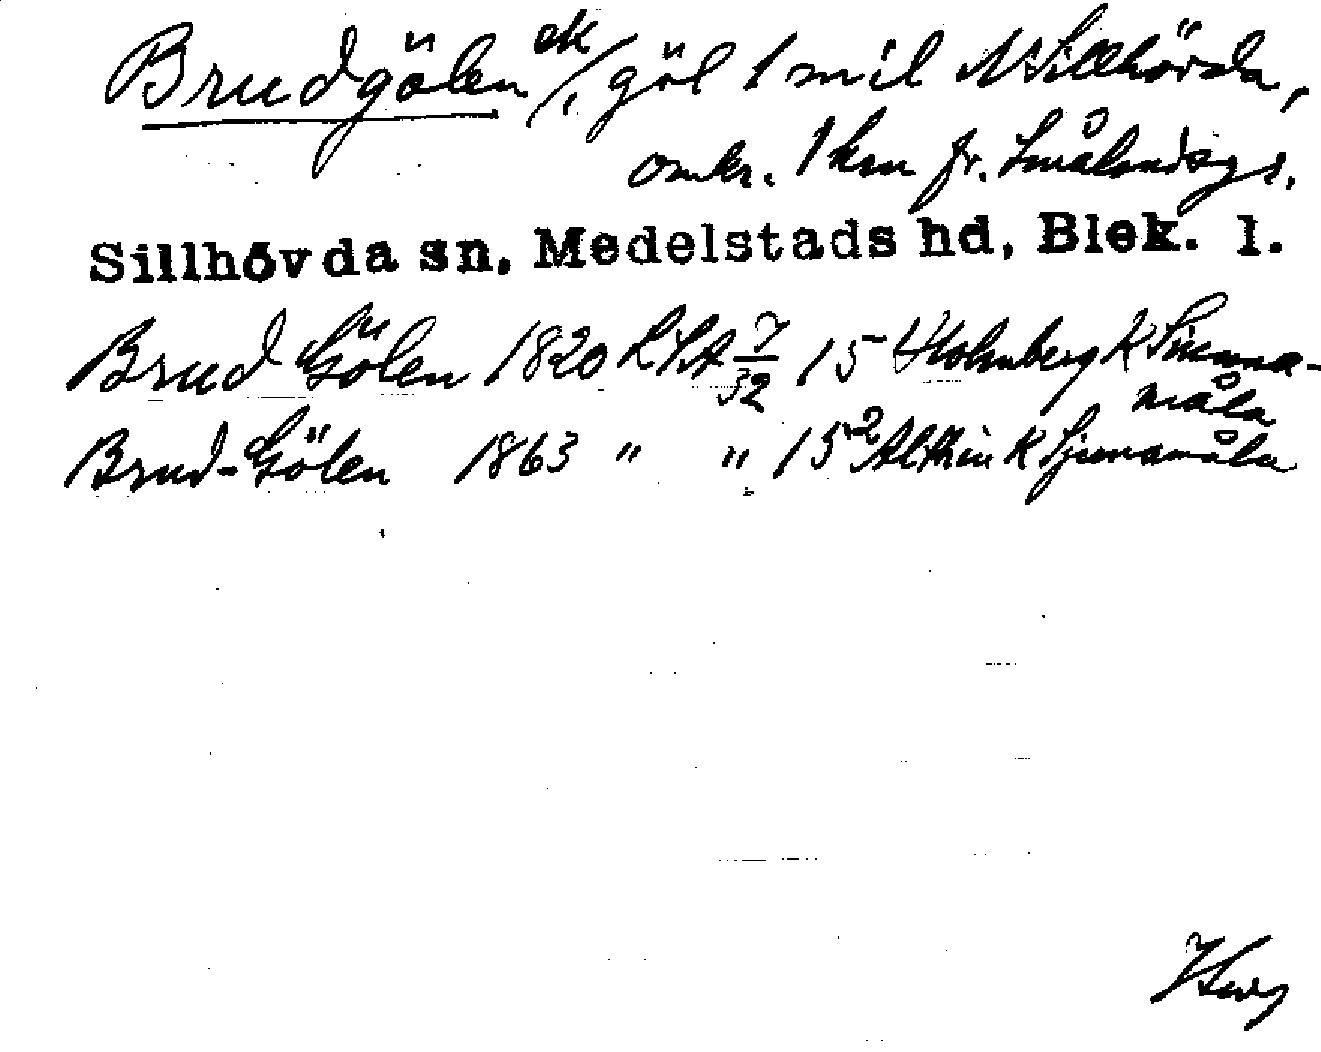 Brudgölen ek/, göl 1 mil N Sillhövda,
omkr. 1 km fr. Smålandsgr.
Sillhövda sn, Medelstads hd, Blek. l.
Brud Gölen 1820 LSA 7/32 15 Holmberg K Siunna-
måla
Brud-Gölen 1863 " " 15² Althin K Sjunamåla